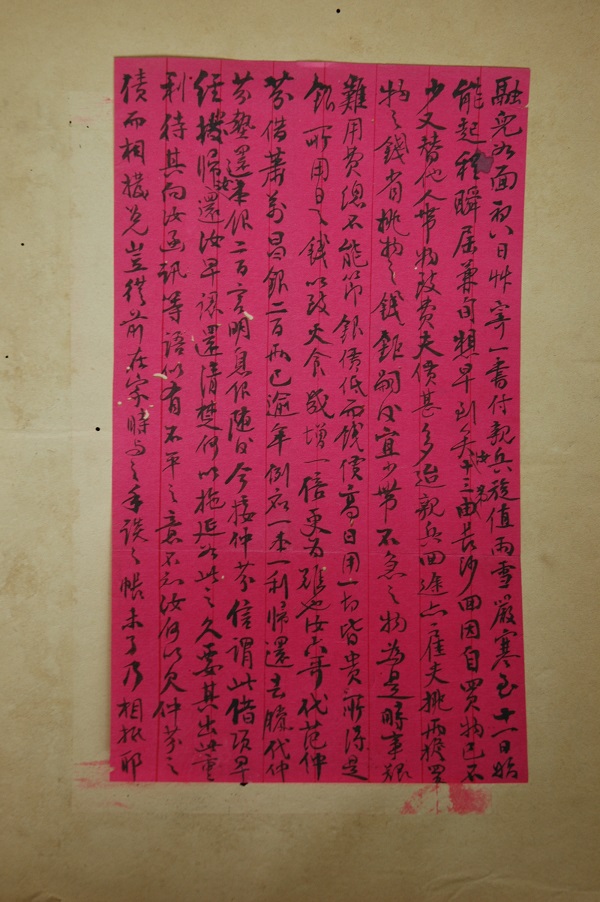 融兒如面初八日草寄一書付親兵旋值雨雪嚴寒至十一日始
能起程瞬屆兼旬想早到矣十三由長沙回因自買物已不
少又替他人帶物致費夫價甚多迨親兵回途亦雇夫挑兩擔買
物之錢省挑物之錢鉅嗣後宜少帶不急之物為是時事艱
難用費總不能節銀價低而錢價高日用一切皆貴所得是
銀所用日日錢以致火食歲增一倍更為難也汝六哥代范仲
芬借蕭萬昌銀二百兩已逾年例應一本一利歸還去臘代仲
芬墊還本銀二百言明息銀隨後今接仲芬信謂此借項早
經撥歸汝還汝早該還清楚何以拖延如此之久要其出此重
利待其向汝函訊等語似有不平之意不知汝何以欠仲芬之
債而相攙兌豈從前在家時與之手談之帳未了乃相抵耶